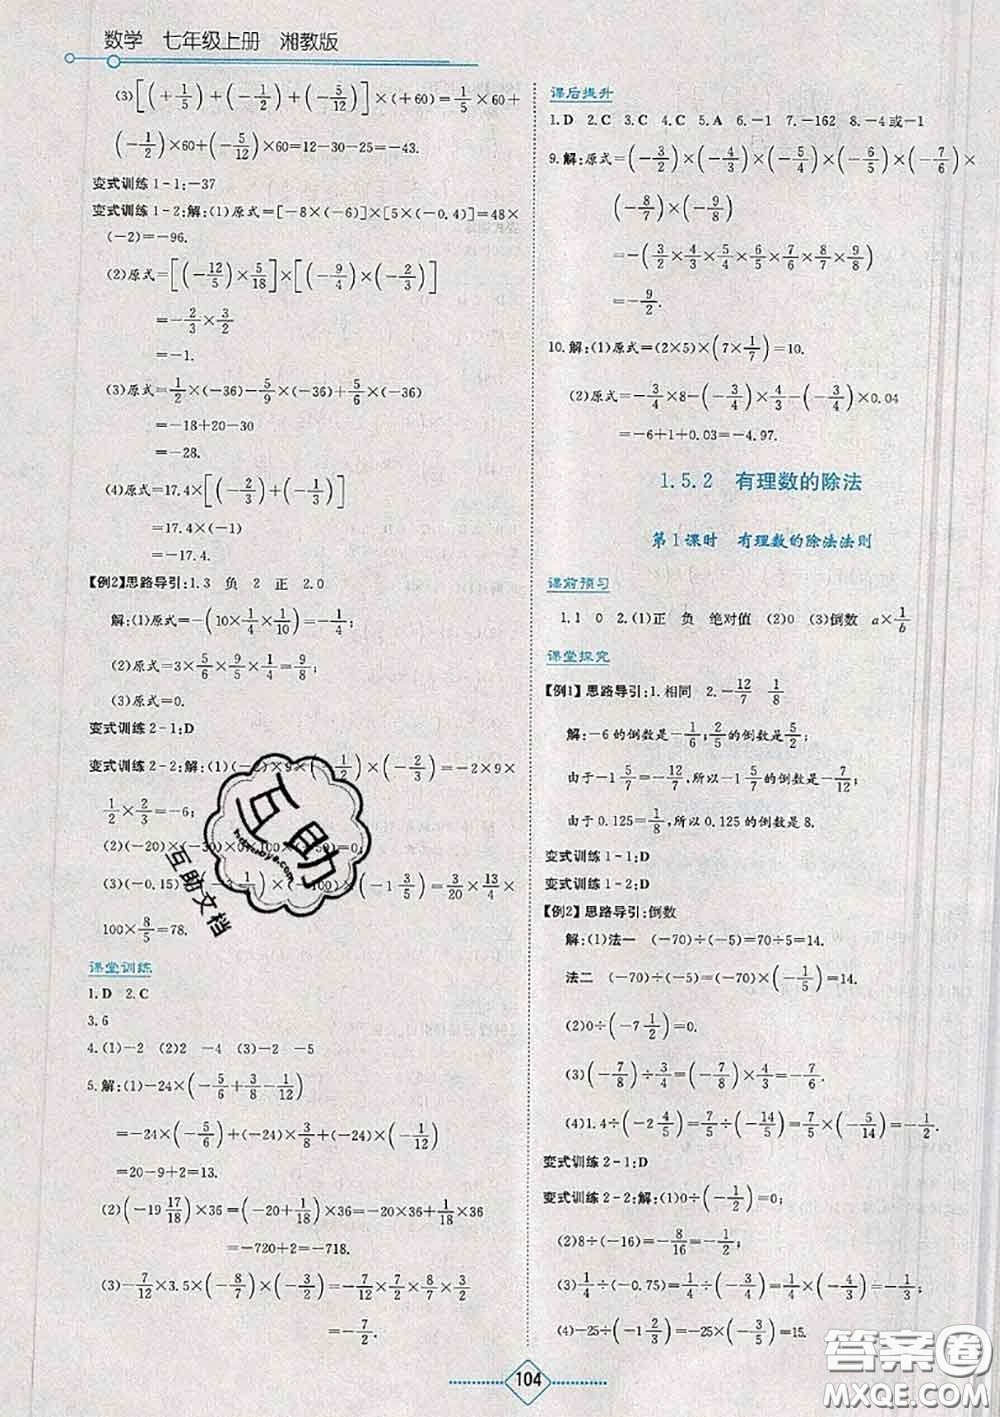 数学 七年级上册 湘教版
(3)[(+1/5)+(-1/2)+(-5/12)]×(+60)=1/5×60+
(-1/2)×60+(-5/12)×60=12-30-25=-43.
变式训练1-1:-37
变式训练1-2:解:(1)原式=[-8×(-6)]×[5×(-0.4)]=48×
(-2)=-96.
(2)原式=[(-12/5)×5/18]×[(-9/4)×(-2/3)]
=-2/3×3/2
=-1.
(3)原式=1/2×(-36)-5/9×(-36)+5/6×(-36)
=-18+20-30
=-28.
(4)原式=17.4×[(-2/3)+(-1/3)]
=17.4×(-1)
=-17.4.
【例2】思路导引:1.3 负 2 正 2.0
解:(1)原式=-(10×1/4×1/10)=-1/4;
(2)原式=3×5/6×9/5×1/4=9/8;
(3)原式=0.
变式训练2-1:D
变式训练2-2:解:(1)(-2)×9×(-1/2)×(-2/3)=-2×9×
1/2×2/3=-6;
(2)(-20)×(-30)
×50)=0;
(3)(-0.15)
1/4)×(-100)×(-1 3/5)=3/20×13/4×
100×8/5=78.
课堂训练
1.D 2.C
3.6
4.(1)-2 (2)2 -4 (3)-2 -5
5.解:(1)-24×(-5/6+3/8-1/12)
=-24×(-5/6)+(-24)×3/8+(-24)×(-1/12)
=20-9+2=13.
(2)(-19 17/18)×36=(-20+1/18)×36=-20×36+1/18×36
=-720+2=-718.
(3)-7/12×3.5×(-8/7)×(-3/2)=-7/12×7/2×8/7×3/2=
-7/2.
课后提升
1.D 2.C 3.C 4.C 5.A 6.-1 7.-162 8.-4或-1
9.解:原式=(-3/2)×(-4/3)×(-5/4)×(-6/5)×(-7/6)×
(-8/7)×(-9/8)
=-(3/2×4/3×5/4×6/5×7/6×8/7×9/8)
=-9/2.
10.解:(1)原式=(2×5)×(7×1/7)=10.
(2)原式=-3/4×8-(-3/4)×4/3-(-3/4)×0.04
=-6+1+0.03=-4.97.
1.5.2 有理数的除法
第1课时 有理数的除法法则
课前预习
1.1 0 2.(1)正 负 绝对值 (2)0 (3)倒数 a×1/b
课堂探究
【例1】思路导引:1.相同 2.-12/7 1/8
解:-6的倒数是-1/6;2/5的倒数是5/2;
由于-1 5/7=-12/7,所以-1 5/7的倒数是-7/12;
由于0.125=1/8,所以0.125的倒数是8.
变式训练1-1:D
变式训练1-2:D
【例2】思路导引:倒数
解:(1)法一 (-70)÷(-5)=70÷5=14.
法二 (-70)÷(-5)=(-70)×(-1/5)=14.
(2)0÷(-7 1/2)=0.
(3)(-7/8)÷3/4=(-7/8)×4/3=-7/6.
(4)1.4÷(-14/5)=7/5÷(-14/5)=7/5×(-5/14)=-1/2.
变式训练2-1:D
变式训练2-2:解:(1)0÷(-1/2)=0;
(2)8÷(-16)=-8/16=-1/2;
(3)1/4÷(-0.75)=1/4÷(-3/4)=1/4×(-4/3)=-1/3;
(4)-25÷(-1 2/3)=-25×(-3/5)=15.
104
互助
互助文档
答案圈
MXQE.COM